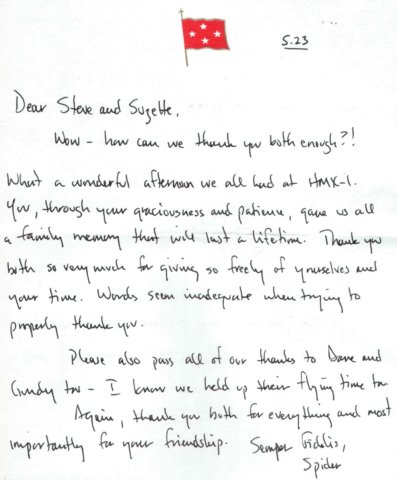 5.23
Dear Steve and Suzette,
Wow - how can we thank you both enough?!
What a wonderful afternoon we all had at HMX-1.
You, through your graciousness and patience, gave us all
a family memory that will last a lifetime. Thank you
both so very much for giving so freely of yourselves and
your time. Words seem inadequate when trying to
properly thank you.
Please also pass all of our thanks to Dave and
Cindy too - I know we held up their flying time too.
Again, thank you both for everything and most
importantly for your friendship. Semper Fidelis,
Spider